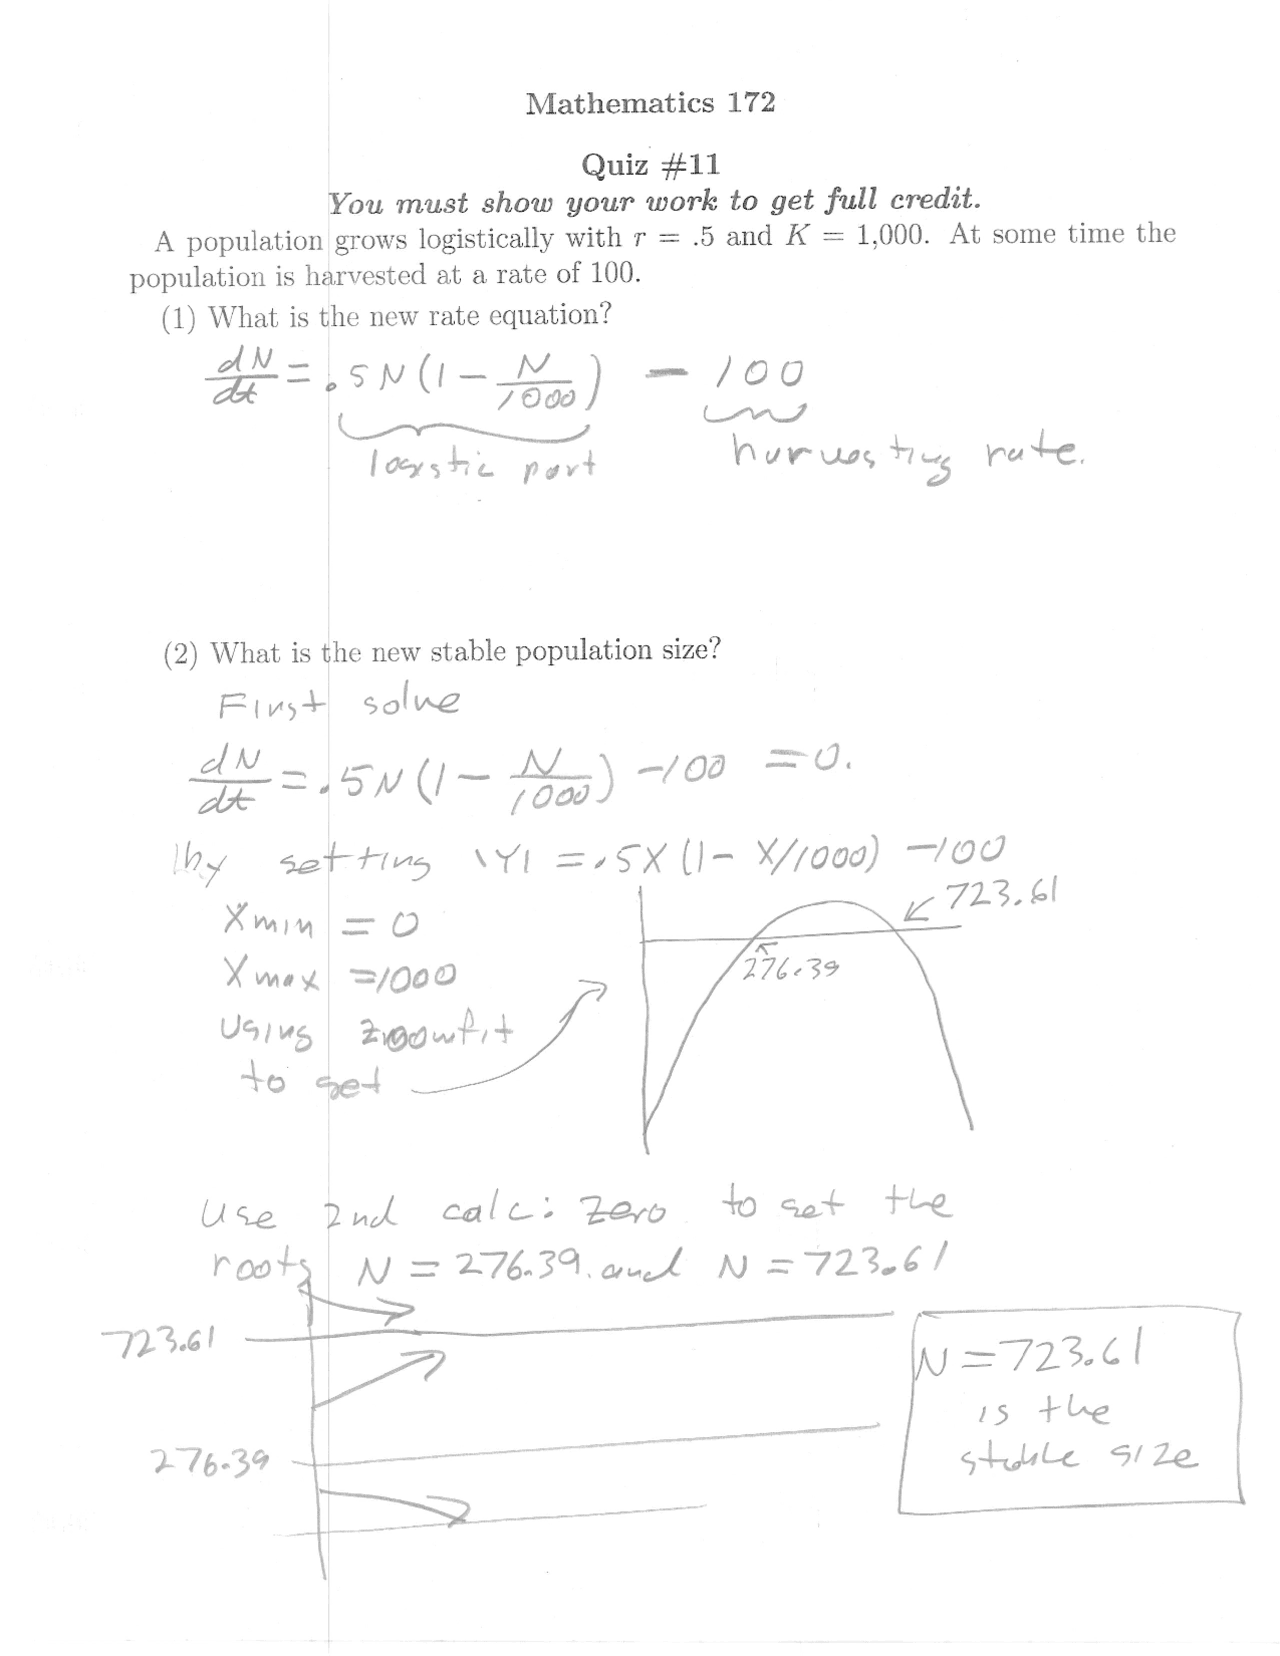 Mathematics 172
Quiz #11
You must show your work to get full credit.
A population grows logistically with r = .5 and K = 1,000. At some time the
population is harvested at a rate of 100.
(1) What is the new rate equation?
dN/dt = .5N(1 - N/1000) - 100
logistic part
harvesting rate.
(2) What is the new stable population size?
First solve
dN/dt = .5N(1 - N/1000) -100 = 0.
by setting \Y1 = .5X(1- X/1000) -100
723.61
Xmin = 0
276.39
Xmax =1000
Using zoomfit
to get
Use 2nd calc: zero to get the
roots N = 276.39. and N = 723.61
723.61
N = 723.61
is the
stable size
276.39